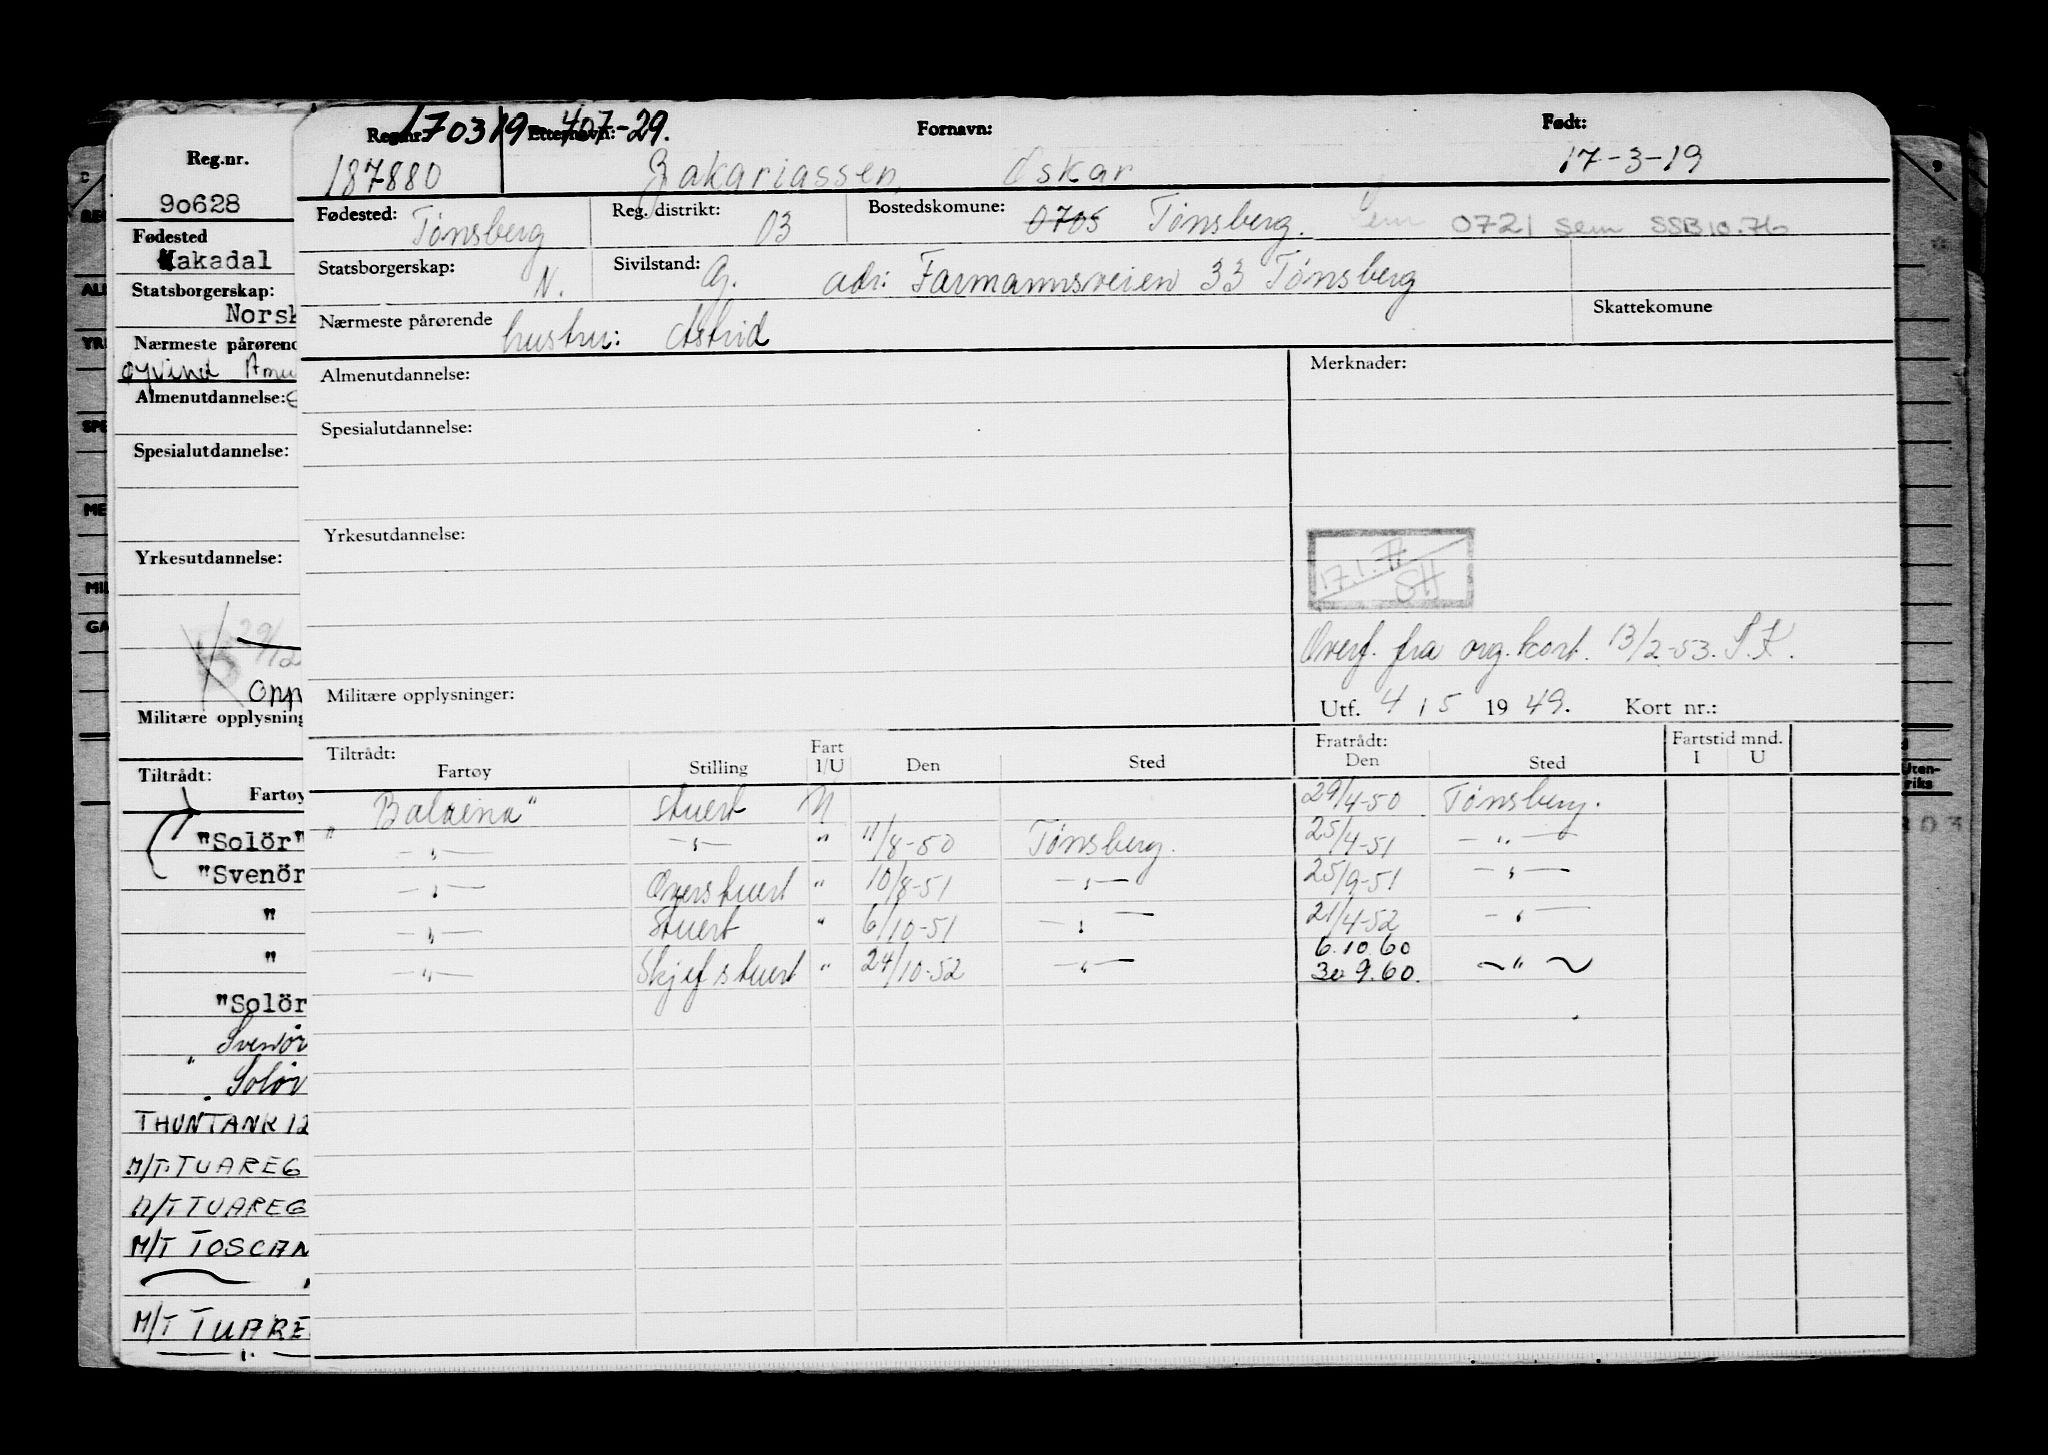 Reg.nr. 170319-407-29. Etternavn: Fornavn: Født:
187880 Zakariassen, Oskar 17-3-19
Fødested: Tønsberg Reg. distrikt: 03 Bostedskomune: 0705 Tønsberg. Sem 0721 Sem SSB 10.76
Statsborgerskap: N. Sivilstand: G. adr: Farmannsveien 33 Tønsberg
Nærmeste pårørende hustru: Astrid Skattekomune
Almenutdannelse: Merknader:
Spesialutdannelse:
Yrkesutdannelse:
17.1.77 SH
Overf. fra org. kort. 13/2-53. S.K.
Militære opplysninger: Utf. 4 / 5 1949. Kort nr.:
Tiltrådt: Fratrådt: Fartstid mnd.
Fartøy Stilling Fart I/U Den Sted Den Sted I U
"Balaena" stuert U 29/4-50 Tønsberg.
—"— —"— " 11/8-50 Tønsberg. 25/4-51 —"—
—"— Overstuert " 10/8-51 —"— 25/9-51 —"—
—"— Stuert " 6/10-51 —"— 21/4-52 —"—
6.10.60
—"— Skjefstuert " 24/10-52 —"— 30.9.60. —"—
Reg.nr.
90628
Fødested
Hakadal
Statsborgerskap:
Norsk
Nærmeste pårørend
Øyvind
Almenutdannelse:
Spesialutdannelse:
Yrkesutdannelse:
29/12
Opp
Militære opplysning
Tiltrådt:
Fartøy
"Solör"
"Svenör
"
"
"Solör
Svenör
" Solör
THUNTANK 12
M/T TUAREG
M/T TUAREG
M/T TOSCAN
M/T TUARE
"
RE
AL
YR
SPE
ME
MIL
GA
9
Uten-
riks
303